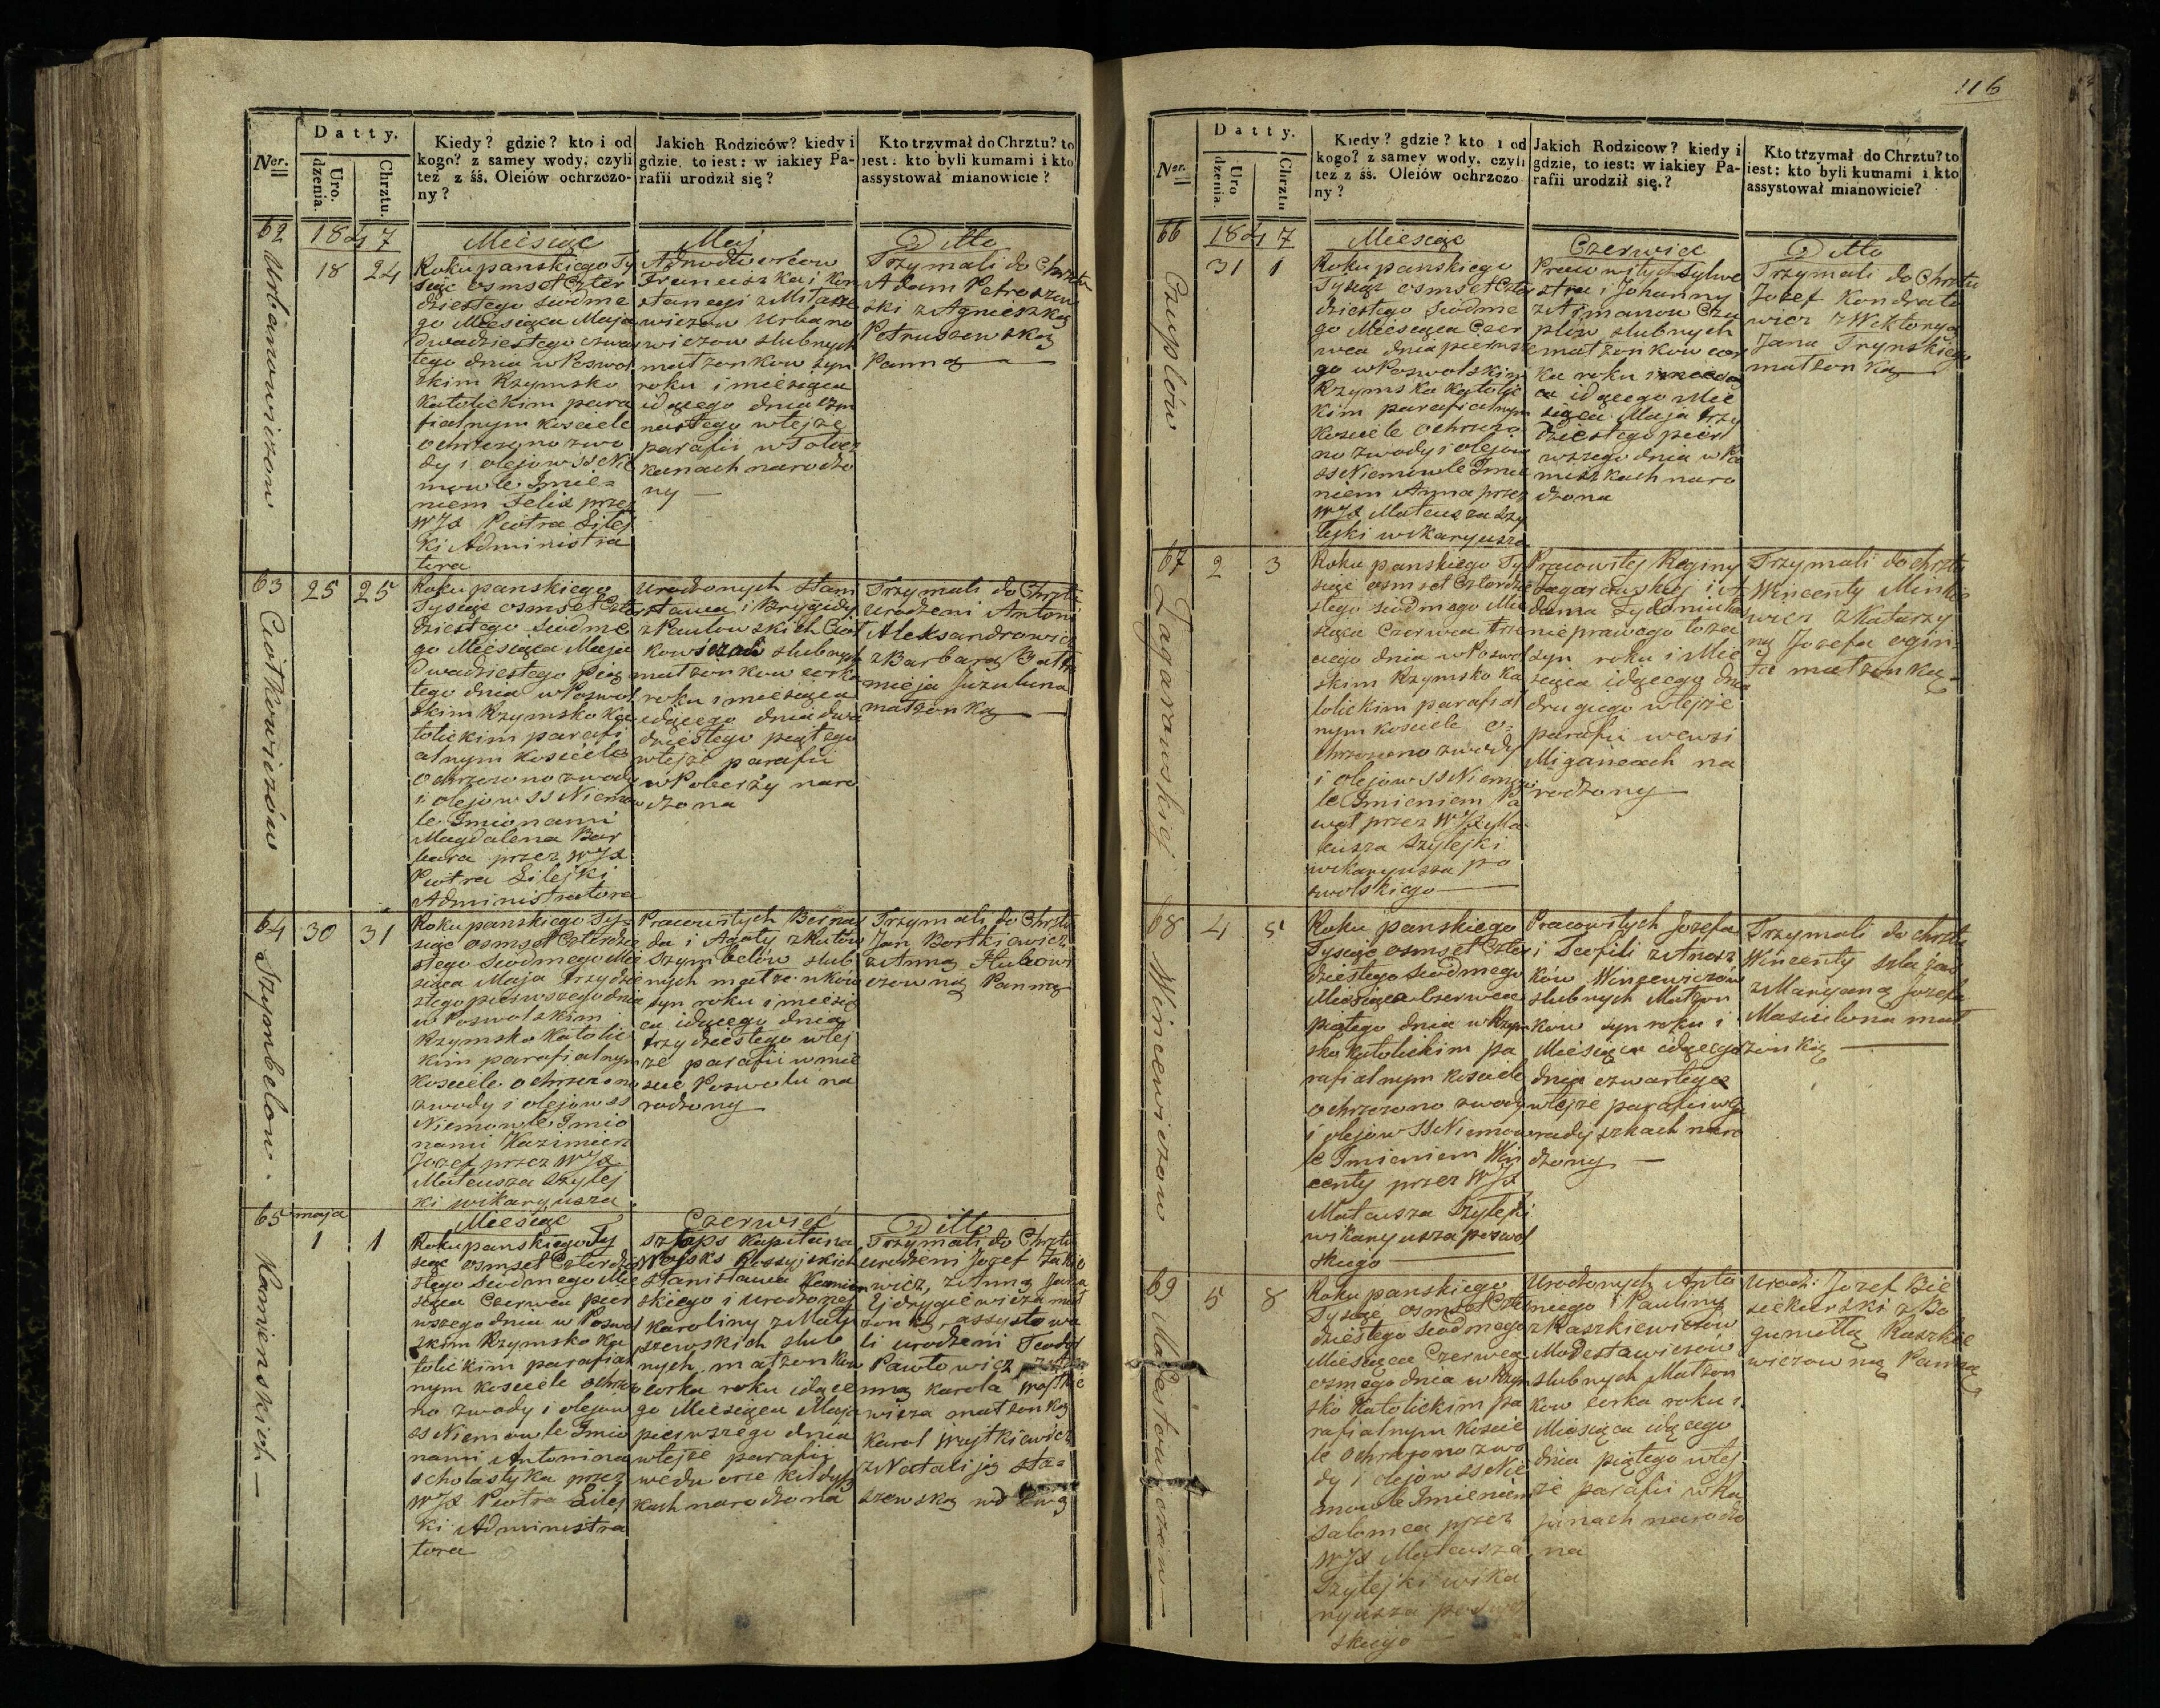 Datty.
Ner.
Uro.
dzenia.
Chrztu.
Kiedy? gdzie? kto i od
kogo? z samey wody, czyli
też z śś. Oleiów ochrzczo-
ny?
Jakich Rodziców? kiedy i
gdzie, to iest: w iakiey Pa-
rafii urodził się?
Kto trzymał do Chrztu? to
iest: kto byli kumami i kto
assystował mianowicie?
62
Urbianowiczow
1847
18 24
Miesiąc
Roku panskiego Ty
siąc osmset czter
dziestego siodme
go Miesiąca Maja
dwadziestego czwar
tego dnia w Poswol
skim Rzymsko
Katolickim para
fialnym Kosciele
ochrzczono z wo
dy i olejow SS Nie
mowle Imie=
niem Felix przez
WJX Piotra Lilej
ki Administra
tora
Maj
Franciszka i Kon
stancyi z Mitasze
wiczow Urbano
wiczow slubnych
małżonkow syn
roku i miesiąca
idącego dnia osm
nastego w tejże
parafii w
kanach narodzo
ny
Ditto
Trzymali do Chrztu
Adam Petroszew
ski z Agnieszką
Petruszewską
Panną
63
Ciotkowiczów
25 25
Roku panskiego
Tysiąc osmset czter
dziestego siodme
go Miesiąca Maja
dwadziestego pią
tego dnia w Poswol
skim Rzymsko Ka
tolickim parafi
alnym Kosciele
ochrzczono z wody
i olejow SS Niemow
le Imionami
Magdalena Bar
bara przez WJX
Piotra Lilejki
Administratora
Urodzonych Stani
sława i Brygidy
z Pawłowskich Ciot
kowiczow slubnych
małżonkow corka
roku i miesiąca
idącego dnia dwu
dziestego piątego
w tejże parafii
w Poleczy naro
dzona
Trzymali do Chrztu
Urodzeni Antoni
Aleksandrowicz
z Barbarą
Juzuluna
małżonką
64
Szymbelow
30 31
Roku panskiego Ty=
siąc osmset czterdzie
stego siodmego Mie
siąca Maja trzydzie
stego pierwszego dnia
w Poswolskim
Rzymsko Katolic
kim parafialnym
Kosciele ochrzczono
z wody i olejow SS
Niemowle Imio
nami Kazimierz
Jozef przez WJX
Mateusza Szylej
ki wikaryusza
Pracowitych Berna
da i Agaty z Kutów
Szymbelów slub
nych małżonków
syn roku i miesią
ca idącego dnia
trzydziestego w tej
że parafii w mie
scie Poswolu na
rodzony
Trzymali do Chrztu
Jan Bortkiewicz
z Anną
czowną Panną
65
Kamienskich
maja
1 1
Miesiąc
Roku panskiego Ty
siąc osmset czterdzie
stego siodmego Mie
siąca Czerwca pier
wszego dnia w Poswol
skim Rzymsko Ka
tolickim parafial
nym Kosciele ochrzczo
no z wody i olejow
SS Niemowle Imio
nami Antonina
Scholastyka przez
WJX Piotra Lilej
ki Administra
tora
Czerwiec
Sztaps Kapitana
Wojsk Rossyjskich
Stanisława Kamien
skiego i Urodzonej
Karoliny z Maty
szewskich slub
nych małżonkow
corka roku idące
go Miesiąca Maja
pierwszego dnia
w tejże parafii
we dworze Kildysz
kach narodzona
Ditto
Trzymali do Chrztu
Urodzeni Jozef
wicz, z Anną Jana
mał
żonką, assystowa
li urodzeni Teodor
Pawłowicz
Karola Wojtkie
wicza małżonką
Karol Wojtkiewicz
z Natalią Sta=
szewską wdową
116
Datty.
Ner.
Uro
dzenia.
Chrztu
Kiedy? gdzie? kto i od
kogo? z samey wody, czyli
też z śś. Oleiów ochrzczo
ny?
Jakich Rodzicow? kiedy i
gdzie, to iest: w iakiey Pa-
rafii urodził się.?
Kto trzymał do Chrztu? to
iest: kto byli kumami i kto
assystował mianowicie?
66
Czuplów
1847
31 1
Miesiąc
Roku panskiego
Tysiąc osmset czter
dziestego siodme
go Miesiąca Czer
wca dnia pierwsze
go w Poswolskim
Rzymsko Katolic
kim parafialnym
Kosciele ochrzczo
no z wody i olejow
SS Niemowle Imie
niem Anna przez
WJX Mateusza Szy
lejki wikaryusza
Czerwiec
Pracowitych Sylwe
stra i Johanny
z Ajmanow Czu
plów slubnych
małżonkow cor
ka roku
idącego Mie
siąca Maja trzy
dziestego pier
wszego dnia w Pa
miszkach naro
dzona
Ditto
Trzymali do Chrztu
Jozef Kondrato
wicz z Wiktoryą
Jana Trynskiego
małżonką
67
Zagarauskiej
2 3
Roku panskiego Ty
siąc osmset czterdzie
stego siodmego Mie
siąca Czerwca trze
ciego dnia w Poswol
skim Rzymsko Ka
tolickim parafial
nym kosciele o=
chrzczono z wody
i olejow SS Niemow
le Imieniem Pa
weł przez WJX Ma
teusza Szylejki
wikaryusza po
swolskiego
Pracowitej Reginy
Zagarauskiej i A
dama
nieprawego łoża
syn roku i Mie
siąca idącego dnia
drugiego w tejże
parafii we wsi
Migancach na
rodzony
Trzymali do chrztu
Wincenty Minkie
wicz z Katarzy
ną Jozefa Ogin
ta małżonką
68
Wincewiczow
4 5
Roku panskiego
Tysiąc osmset czter
dziestego siodmego
Miesiąca Czerwca
piątego dnia w Rzym
sko katolickim pa
rafialnym kosciele
ochrzczono z wody
i olejow SS Niemow
le Imieniem Win
centy przez WJX
Mateusza Szylejki
wikaryusza poswol
skiego
Pracowitych Jozefa
i Teofili z Anusz
ków Wincewiczów
slubnych Małżon
kow syn roku i
Miesiąca idącego
dnia czwartego
w tejże parafii w
radyszkach naro
dzony
Trzymali do chrztu
Wincenty
z Maryanną Jozefa
Masiulona mał
żonką
69
Modestowiczow
5 8
Roku panskiego
Tysiąc osmset czter
dziestego siodmego
Miesiąca Czerwca
osmego dnia w Rzym
sko Katolickim pa
rafialnym koscie
le ochrzczono z wo
dy i olejow SS Nie
mowle Imieniem
Salomea przez
WJX Mateusza
Szylejki wika
ryusza poswol
skiego
Urodzonych Anto
niego i Pauliny
z Raszkiewiczów
Modestowiczów
slubnych Małżon
kow corka roku i
Miesiąca idącego
dnia piątego w tej
że parafii w Ka
jinach narodzo
na
Urodz: Jozef Bie
siekierski z Bo
gumiłłą Raszkie
wiczowną Panną